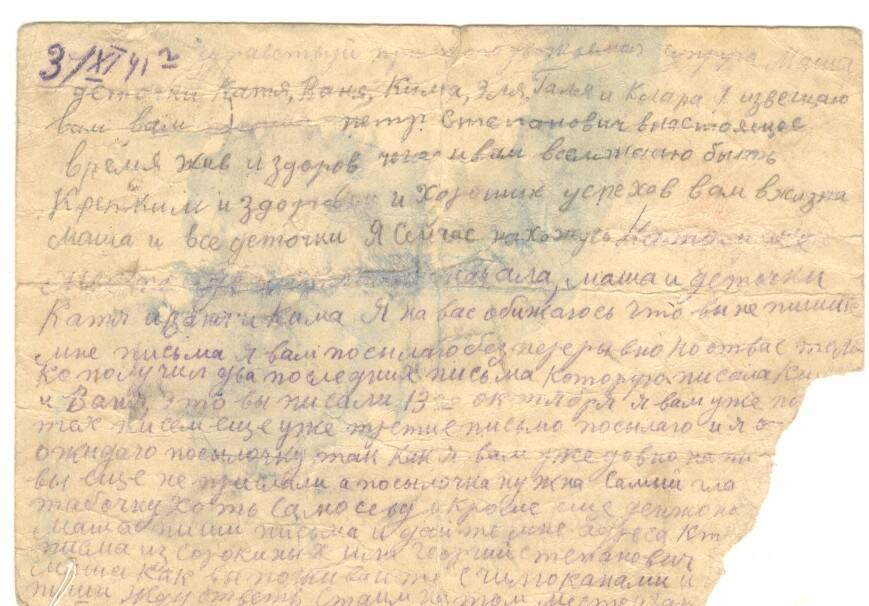 3/XI 41 г здравствуй супруга Маша
деточки Катя, Ваня, Кима, Эля, Галя и Клара! извещаю
вам вам петр Степанович внастоящое
время жив и здоров чего и вам всем желаю быть
Крепким и здоровым и хороших успехов вам вжизни
Маша и все деточки Я Сейчас нахожусь
маша и деточки
Катя и Ваня и Кима Я на вас обижаюсь что вы не пишите
мне письма я вам посылаю без перерывно но от вас толь
ко получил два последних письма которую писала Ким
и Ваня, это вы писали 13го октября я вам уже по
тех писем еще уже третие письмо посылаю и я
ожидаю посылочку так как я вам уже довно напи
вы еще не прислали а посылочка нужна Самый гла
табочку хоть Самосеву а кроме еще
Маша пиши письма и дай те мне адреса Кт
письма из Сорокиных или Георгий степанович
Маша как вы поживайте с и
пиши жду ответь Стаим на том месте